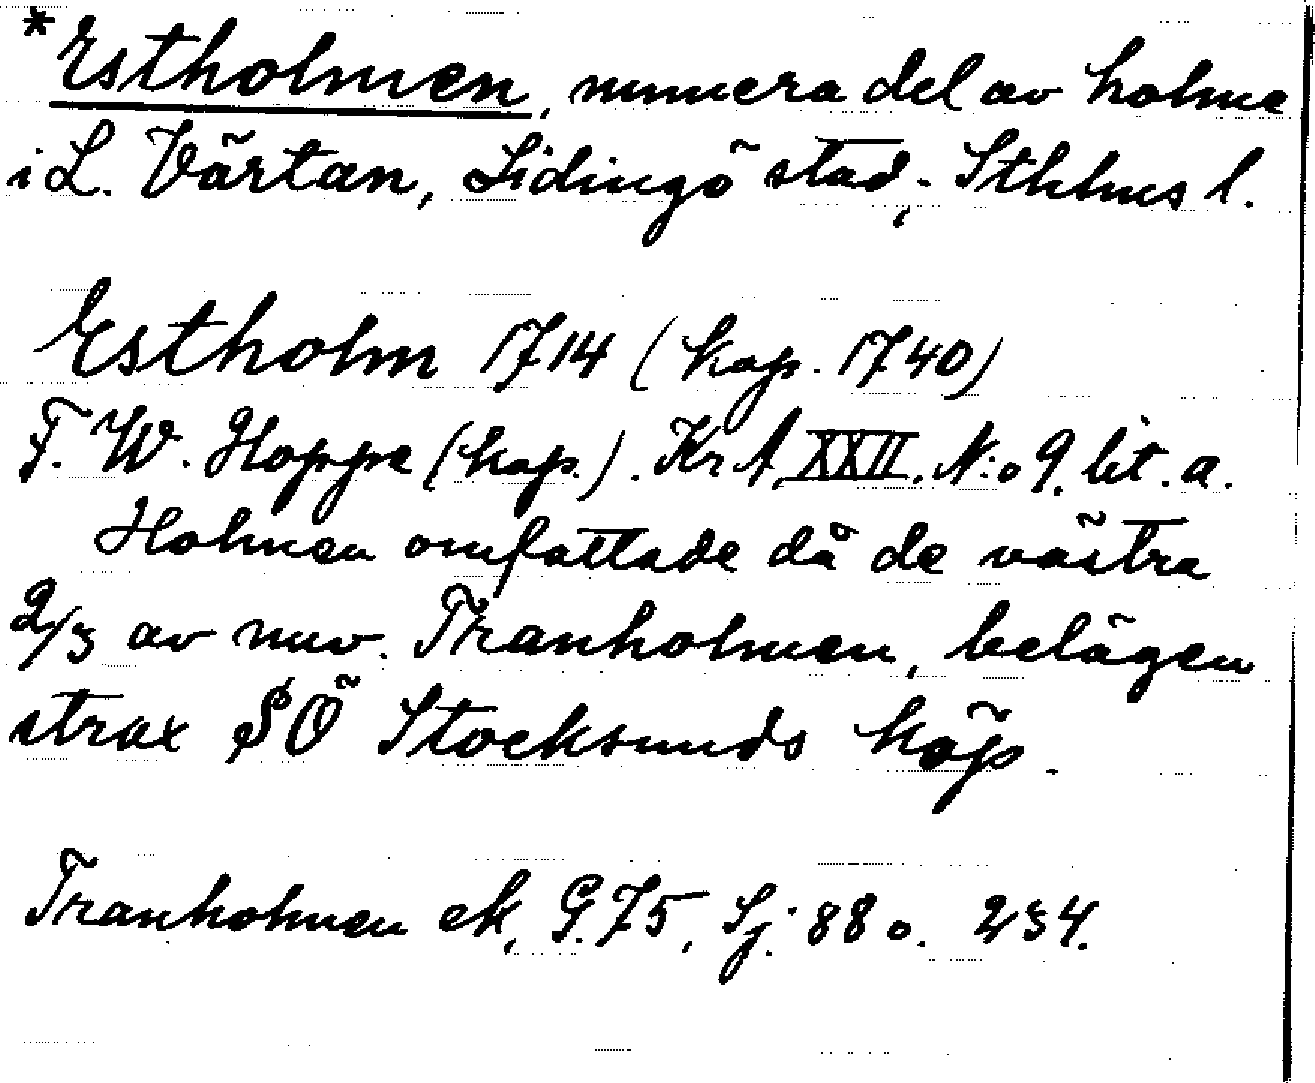 *Estholmen, numera del av holme
i L. Värtan, Lidingö stad, Sthlms l.
Estholm 1714 (kop. 1740)
F. W. Hoppe (kop.). KrA, XXII. N:o 9. lit. a.
Holmen omfattade då de västra
2/3 av nuv. Tranholmen, belägen
strax SÖ Stocksunds köp.
Tranholmen ek, G. 75, Sj. 88 o. 234.